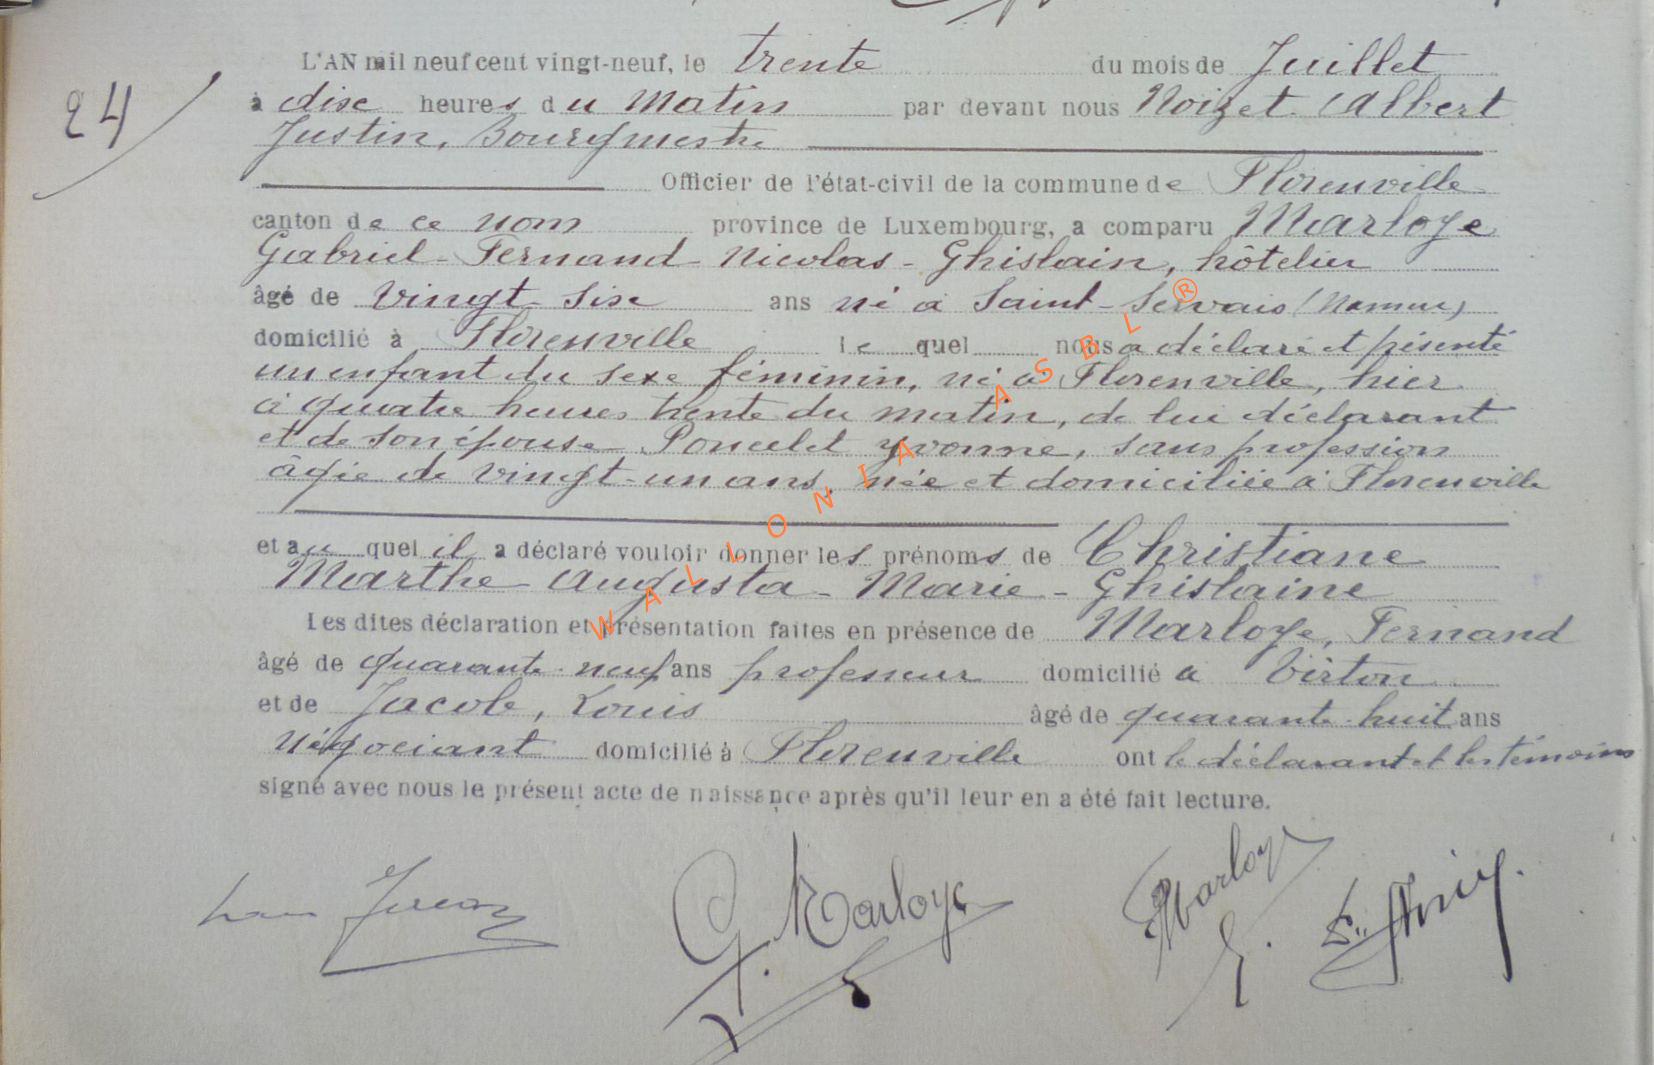 24
L'AN mil neuf cent vingt-neuf, le trente du mois de Juillet
à dixe heures du Matin par devant nous Noizet Albert
Justin, Bourgmestre
Officier de l'état-civil de la commune de Florenville
canton de ce nom province de Luxembourg, a comparu Marloye
Gabriel-Fernand-Nicolas-Ghislain, hôtelier
âgé de Vingt-six ans né à Saint-Servais (Namur)
domicilié à Florenville lequel nous a déclaré et présenté
un enfant du sexe féminin, né à Florenville, hier
à quatre heures trente du matin, de lui déclarant
et de son épouse Poncelet Yvonne, sans profession
âgée de vingt-un ans, née et domiciliée à Florenville
et au quel il a déclaré vouloir donner les prénoms de Christiane
Marthe-Augusta-Marie-Ghislaine
Les dites déclaration et présentation faites en présence de Marloye, Fernand
âgé de quarante-neuf ans professeur domicilié à Virton
et de Jacob, Louis âgé de quarante-huit ans
Négociant domicilié à Florenville ont le déclarant et les témoins
signé avec nous le présent acte de naissance après qu'il leur en a été fait lecture.
G. Marloye
WALLONIA ASBL ®